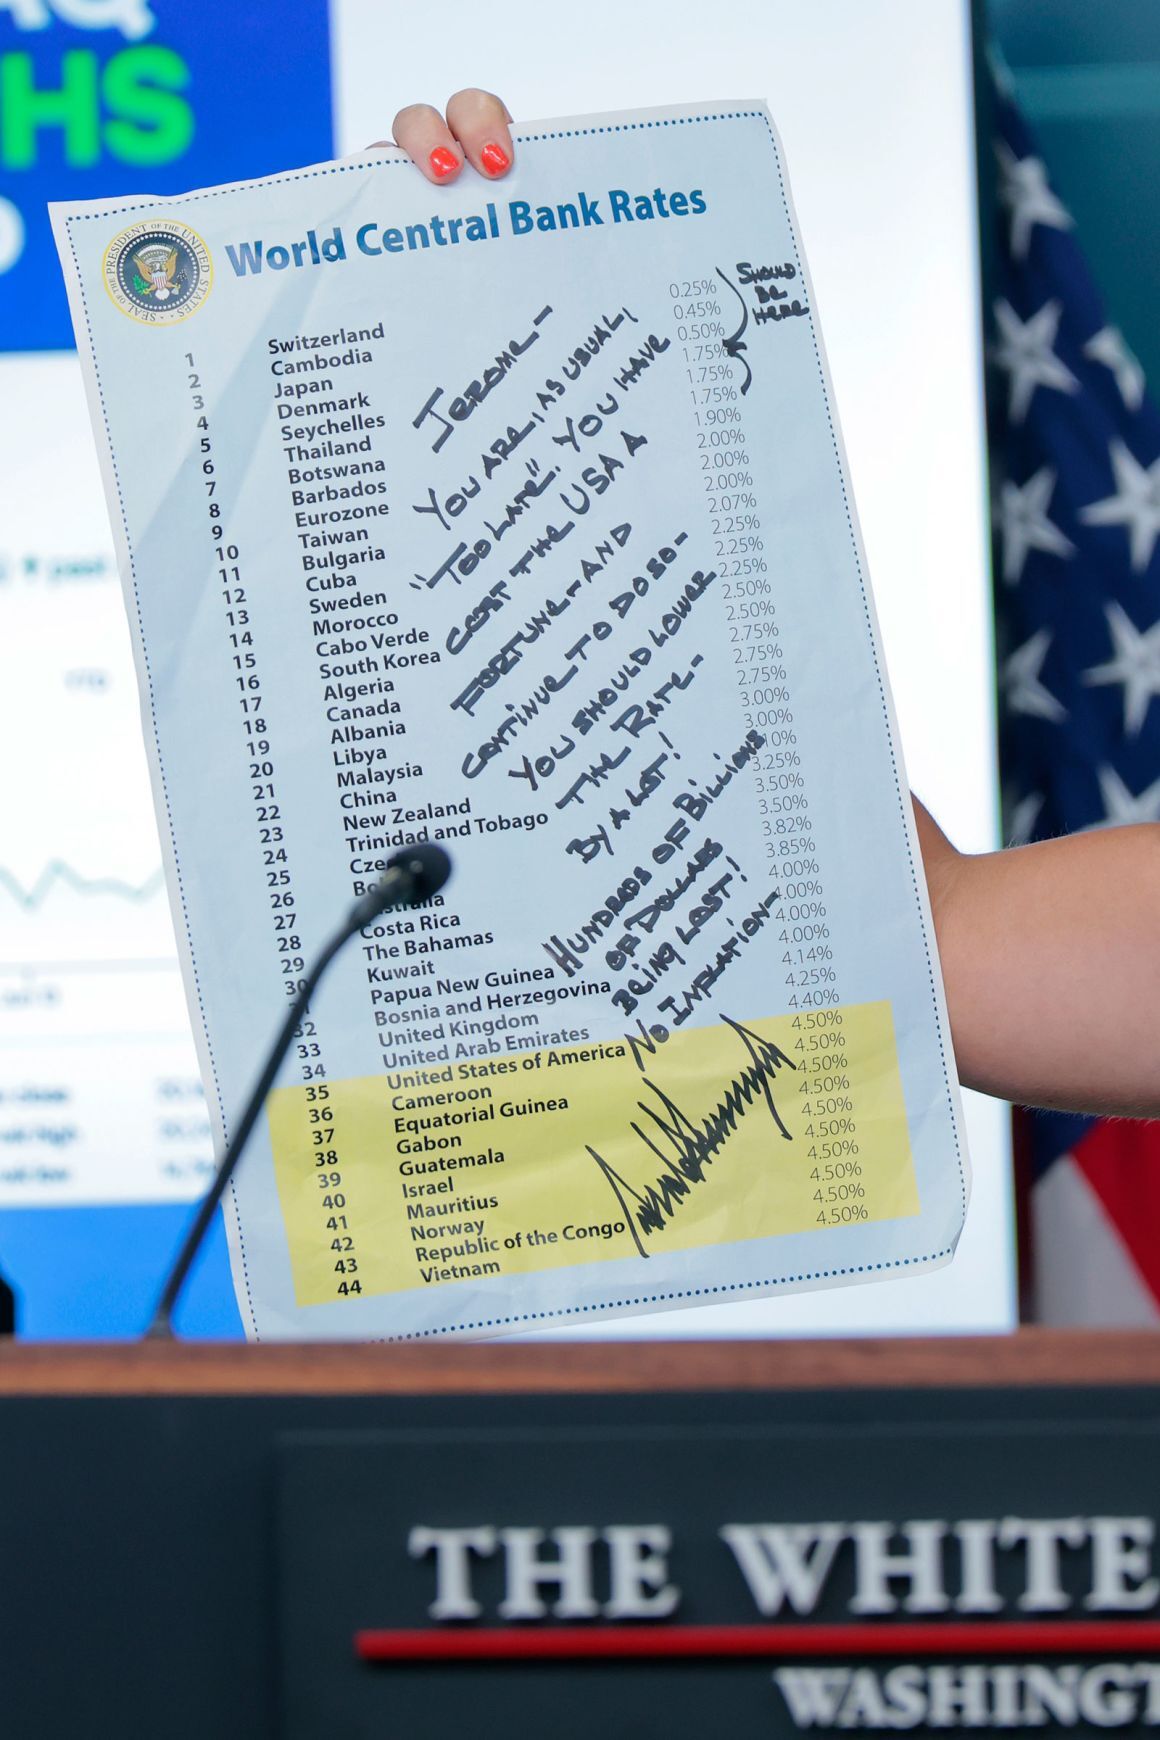 HS
SEAL OF THE PRESIDENT OF THE UNITED STATES
World Central Bank Rates
1 Switzerland 0.25%
2 Cambodia 0.45%
3 Japan 0.50%
4 Denmark 1.75%
5 Seychelles 1.75%
6 Thailand 1.75%
7 Botswana 1.90%
8 Barbados 2.00%
9 Eurozone 2.00%
10 Taiwan 2.00%
11 Bulgaria 2.07%
12 Cuba 2.25%
13 Sweden 2.25%
14 Morocco 2.25%
15 Cabo Verde 2.50%
16 South Korea 2.50%
17 Algeria 2.75%
18 Canada 2.75%
19 Albania 2.75%
20 Libya 3.00%
21 Malaysia 3.00%
22 China 10%
23 New Zealand 3.25%
24 Trinidad and Tobago 3.50%
25 3.50%
26 3.82%
27 3.85%
28 Costa Rica 4.00%
29 The Bahamas 4.00%
30 Kuwait 4.00%
Papua New Guinea 4.00%
32 Bosnia and Herzegovina 4.14%
33 United Kingdom 4.25%
34 United Arab Emirates 4.40%
35 United States of America 4.50%
36 Cameroon 4.50%
37 Equatorial Guinea 4.50%
38 Gabon 4.50%
39 Guatemala 4.50%
40 Israel 4.50%
41 Mauritius 4.50%
42 Norway 4.50%
43 Republic of the Congo 4.50%
44 Vietnam 4.50%
SHOULD
BE
HERE
JEROME—
YOU ARE, AS USUAL,
"TOO LATE." YOU HAVE
COST THE USA A
FORTUNE—AND
CONTINUE TO DO SO—
YOU SHOULD LOWER
THE RATE—
BY A LOT!
HUNDREDS OF BILLIONS
OF DOLLARS
BEING LOST!
NO INFLATION—
THE WHITE
WASHINGT